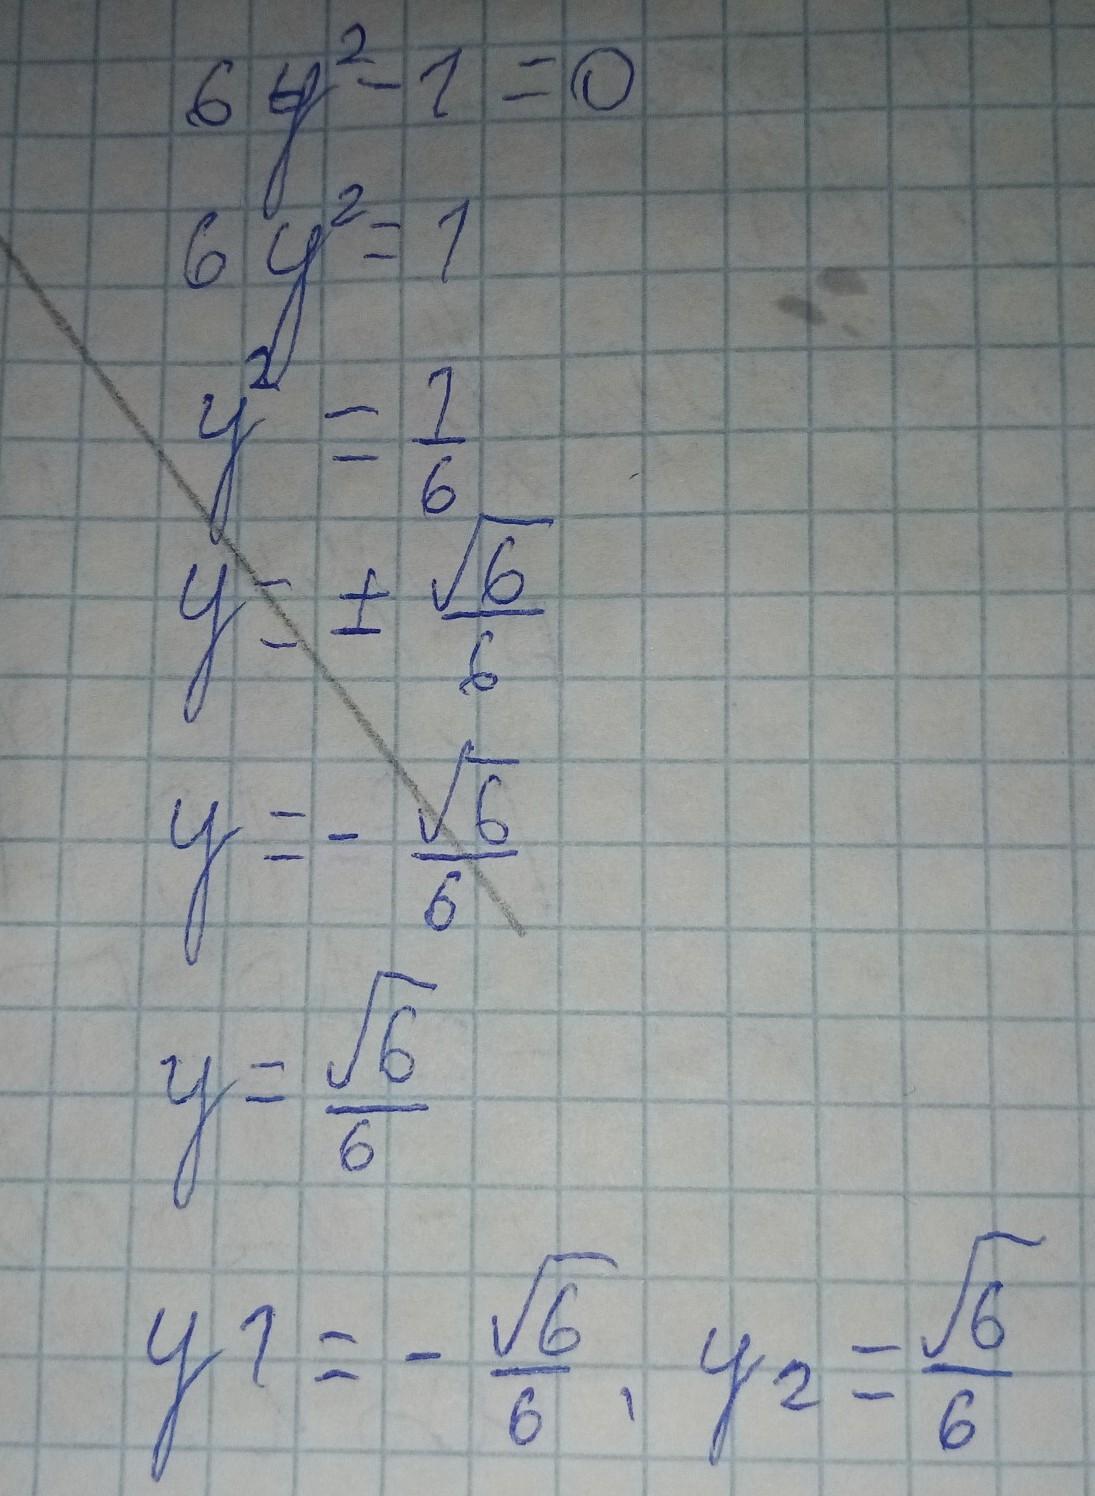 6y² - 1 = 0
6y² = 1
y² = 1/6
y = ± √6/6
y = - √6/6
y = √6/6
y1 = - √6/6, y2 = √6/6